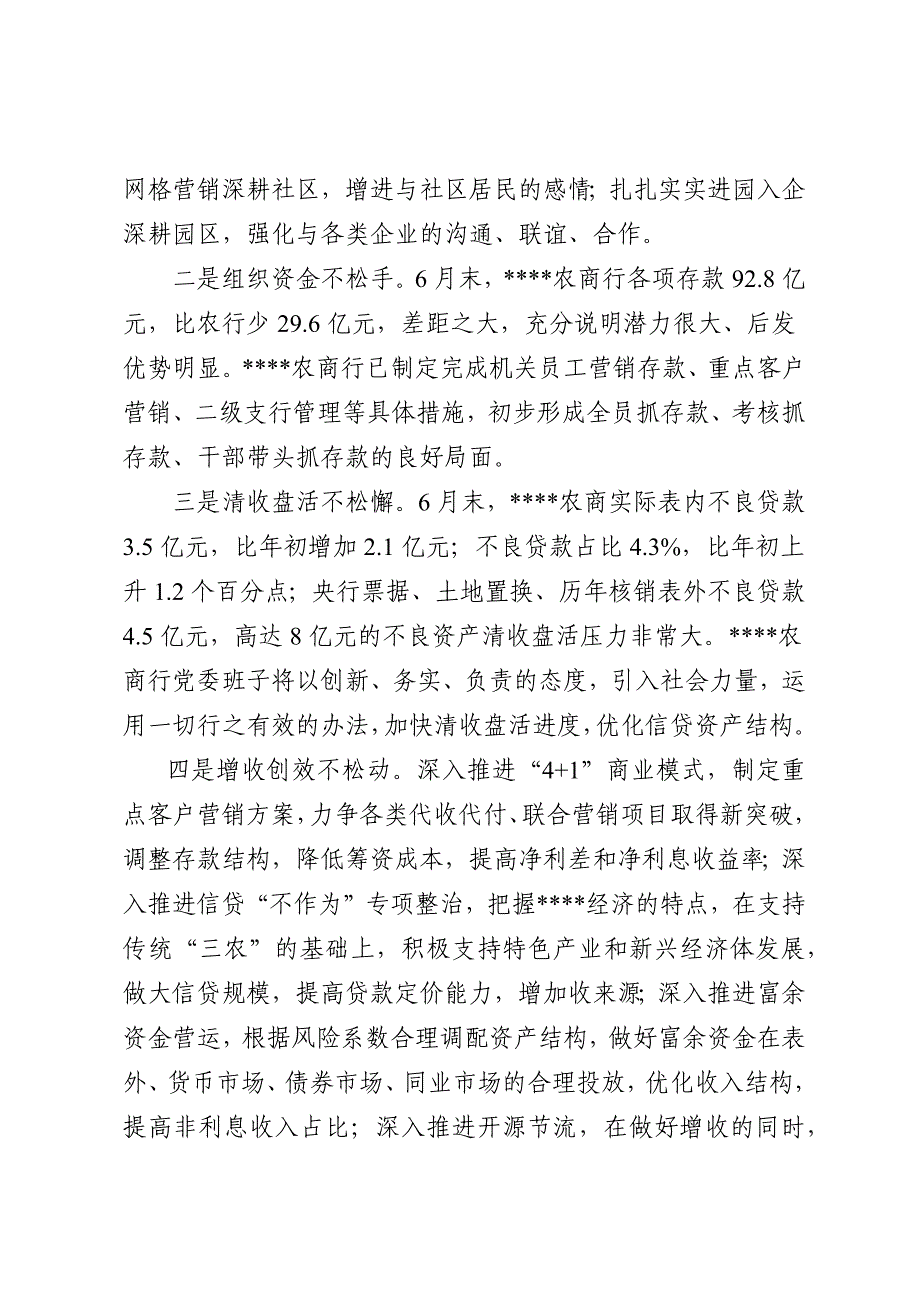 网格营销深耕社区，增进与社区居民的感情；扎扎实实进园入企
深耕园区，强化与各类企业的沟通、联谊、合作。
二是组织资金不松手。6 月末，****农商行各项存款 92.8 亿
元，比农行少 29.6 亿元，差距之大，充分说明潜力很大、后发
优势明显。****农商行已制定完成机关员工营销存款、重点客户
营销、二级支行管理等具体措施，初步形成全员抓存款、考核抓
存款、干部带头抓存款的良好局面。
三是清收盘活不松懈。6 月末，****农商实际表内不良贷款
3.5 亿元，比年初增加 2.1 亿元；不良贷款占比 4.3%，比年初上
升 1.2 个百分点；央行票据、土地置换、历年核销表外不良贷款
4.5 亿元，高达 8 亿元的不良资产清收盘活压力非常大。****农
商行党委班子将以创新、务实、负责的态度，引入社会力量，运
用一切行之有效的办法，加快清收盘活进度，优化信贷资产结构。
四是增收创效不松动。深入推进“4+1”商业模式，制定重
点客户营销方案，力争各类代收代付、联合营销项目取得新突破，
调整存款结构，降低筹资成本，提高净利差和净利息收益率；深
入推进信贷“不作为”专项整治，把握****经济的特点，在支持
传统“三农”的基础上，积极支持特色产业和新兴经济体发展，
做大信贷规模，提高贷款定价能力，增加收来源；深入推进富余
资金营运，根据风险系数合理调配资产结构，做好富余资金在表
外、货币市场、债券市场、同业市场的合理投放，优化收入结构，
提高非利息收入占比；深入推进开源节流，在做好增收的同时，